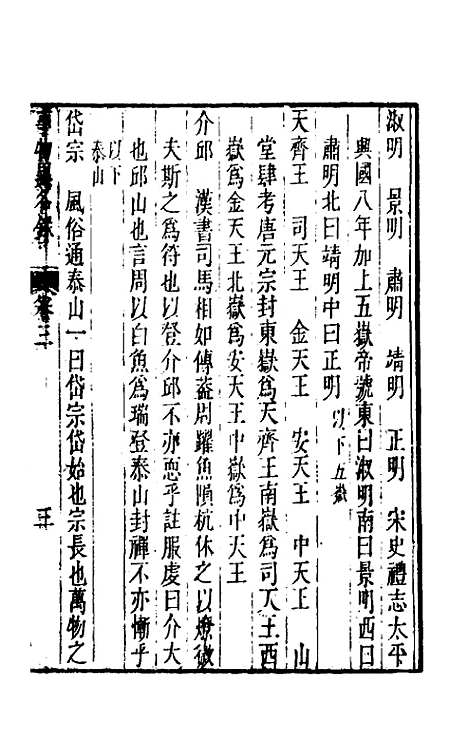 淑明　景明　肅明　靖明　正明　宋史禮志太平
興國八年加上五嶽帝號東曰淑明南曰景明西曰
肅明北曰靖明中曰正明以下五嶽
天齊王　司天王　金天王　安天王　中天王　山
堂肆考唐元宗封東嶽爲天齊王南嶽爲司天王西
嶽爲金天王北嶽爲安天王中嶽爲中天王
介邱　漢書司馬相如傳蓋周躍魚隕杭休之以燎微
夫斯之爲符也以登介邱不亦恧乎註服虔曰介大
也邱山也言周以白魚爲瑞登泰山封禪不亦慚乎
以下
泰山
岱宗　風俗通泰山一曰岱宗岱始也宗長也萬物之
事物異名錄　卷三　三